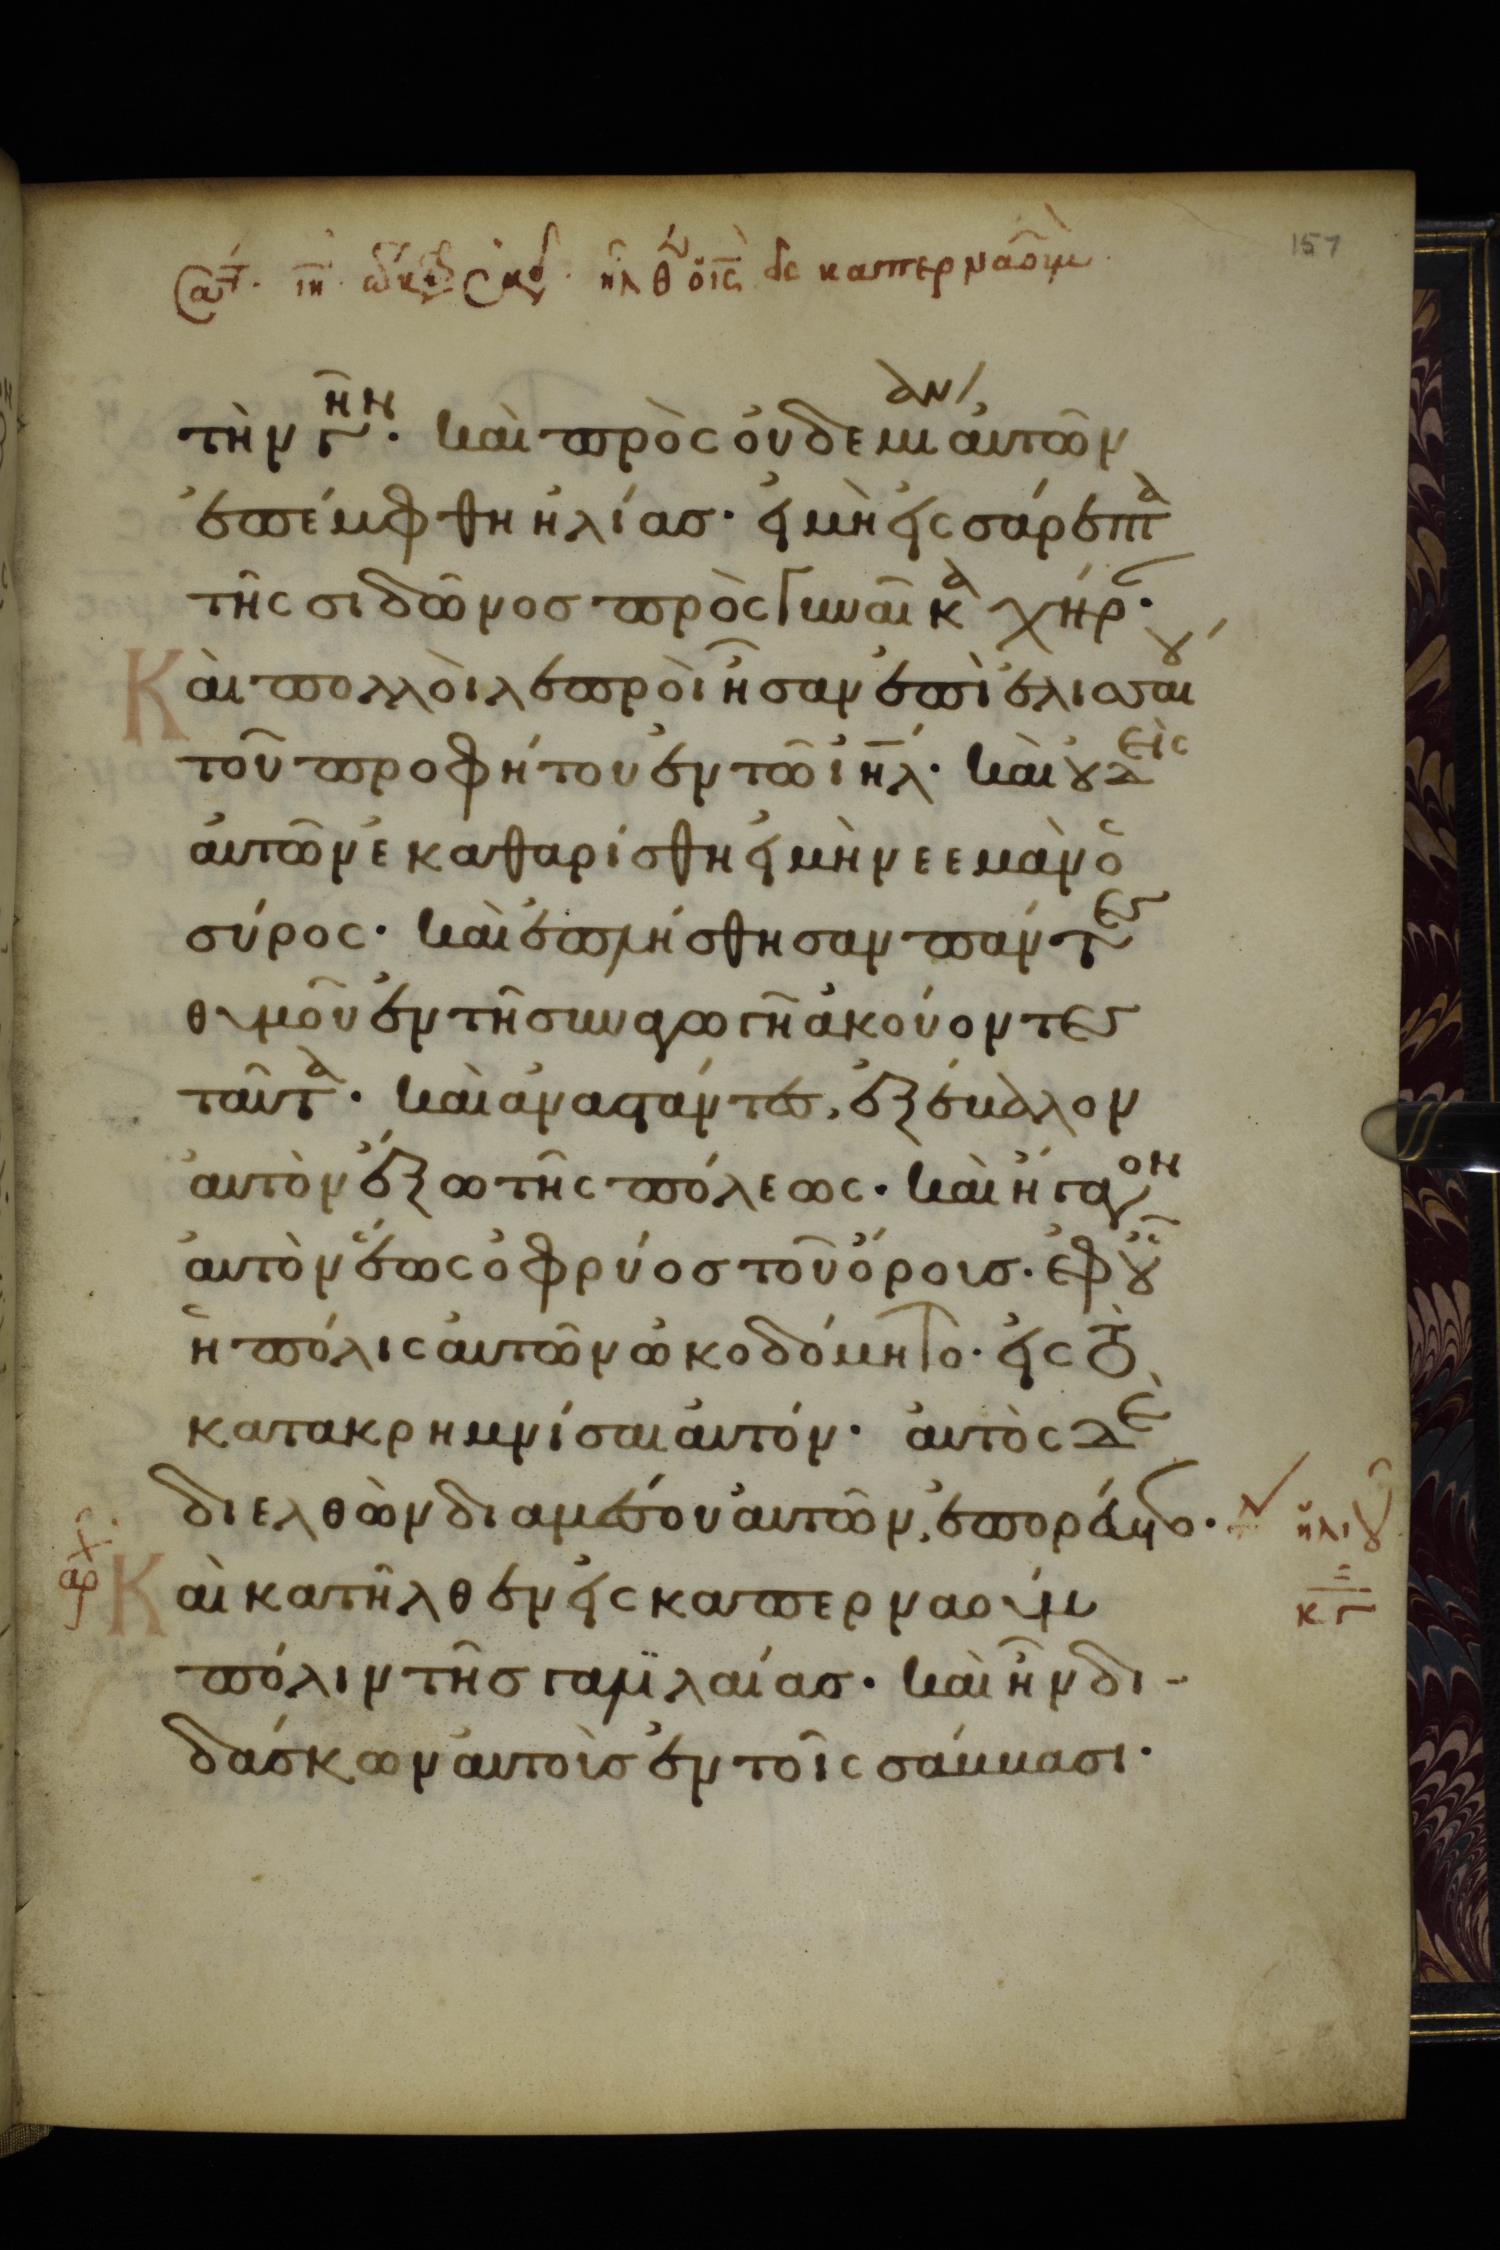 157
ἦλθ ὁ ις εις καπερναοὺμ
τὴν γῆν· καὶ πρὸς οὐδεμίαν αὐτῶν
ἐπέμφθη ἠλίας· εἰ μὴ εἰς σάρεπτὰ
τῆς σιδῶνος πρὸς γυναῖκὰ χήραν·
Καὶ πολλοὶ λεπροὶ ἦσαν ἐπὶ ἐλισσαίου
τοῦ προφήτου ἐν τῶ ιηλ· καὶ οὐδεὶς
αὐτῶν ἐκαθαρίσθη εἰ μὴ νεεμὰν ὁ
σύρος· καὶ ἐπλήσθησαν πάντες
θυμοῦ ἐν τῆ συναγωγῆ ἀκούοντες
ταῦτὰ· καὶ ἀναστάντες, ἐξέβαλον
αὐτὸν ἔξω τῆς πόλεως· καὶ ἤγαγον
αὐτὸν ἕως ὀφρύος τοῦ ὄρους· ἐφ οὗ
ἡ πόλις αὐτῶν ὠκοδόμητο· εἰς τὸ
κατακρημνίσαι αὐτόν· αὐτὸς δὲ
διελθὼν δια μέσου αὐτῶν, ἐπορεύετο·
ἠλιοῦ
αρχ
Καὶ κατῆλθεν εἰς καπερναούμ
κγ
πόλιν τῆς γαλιλαίας· καὶ ἦν δι-
δάσκων αὐτοὺς ἐν τοῖς σάββασι·